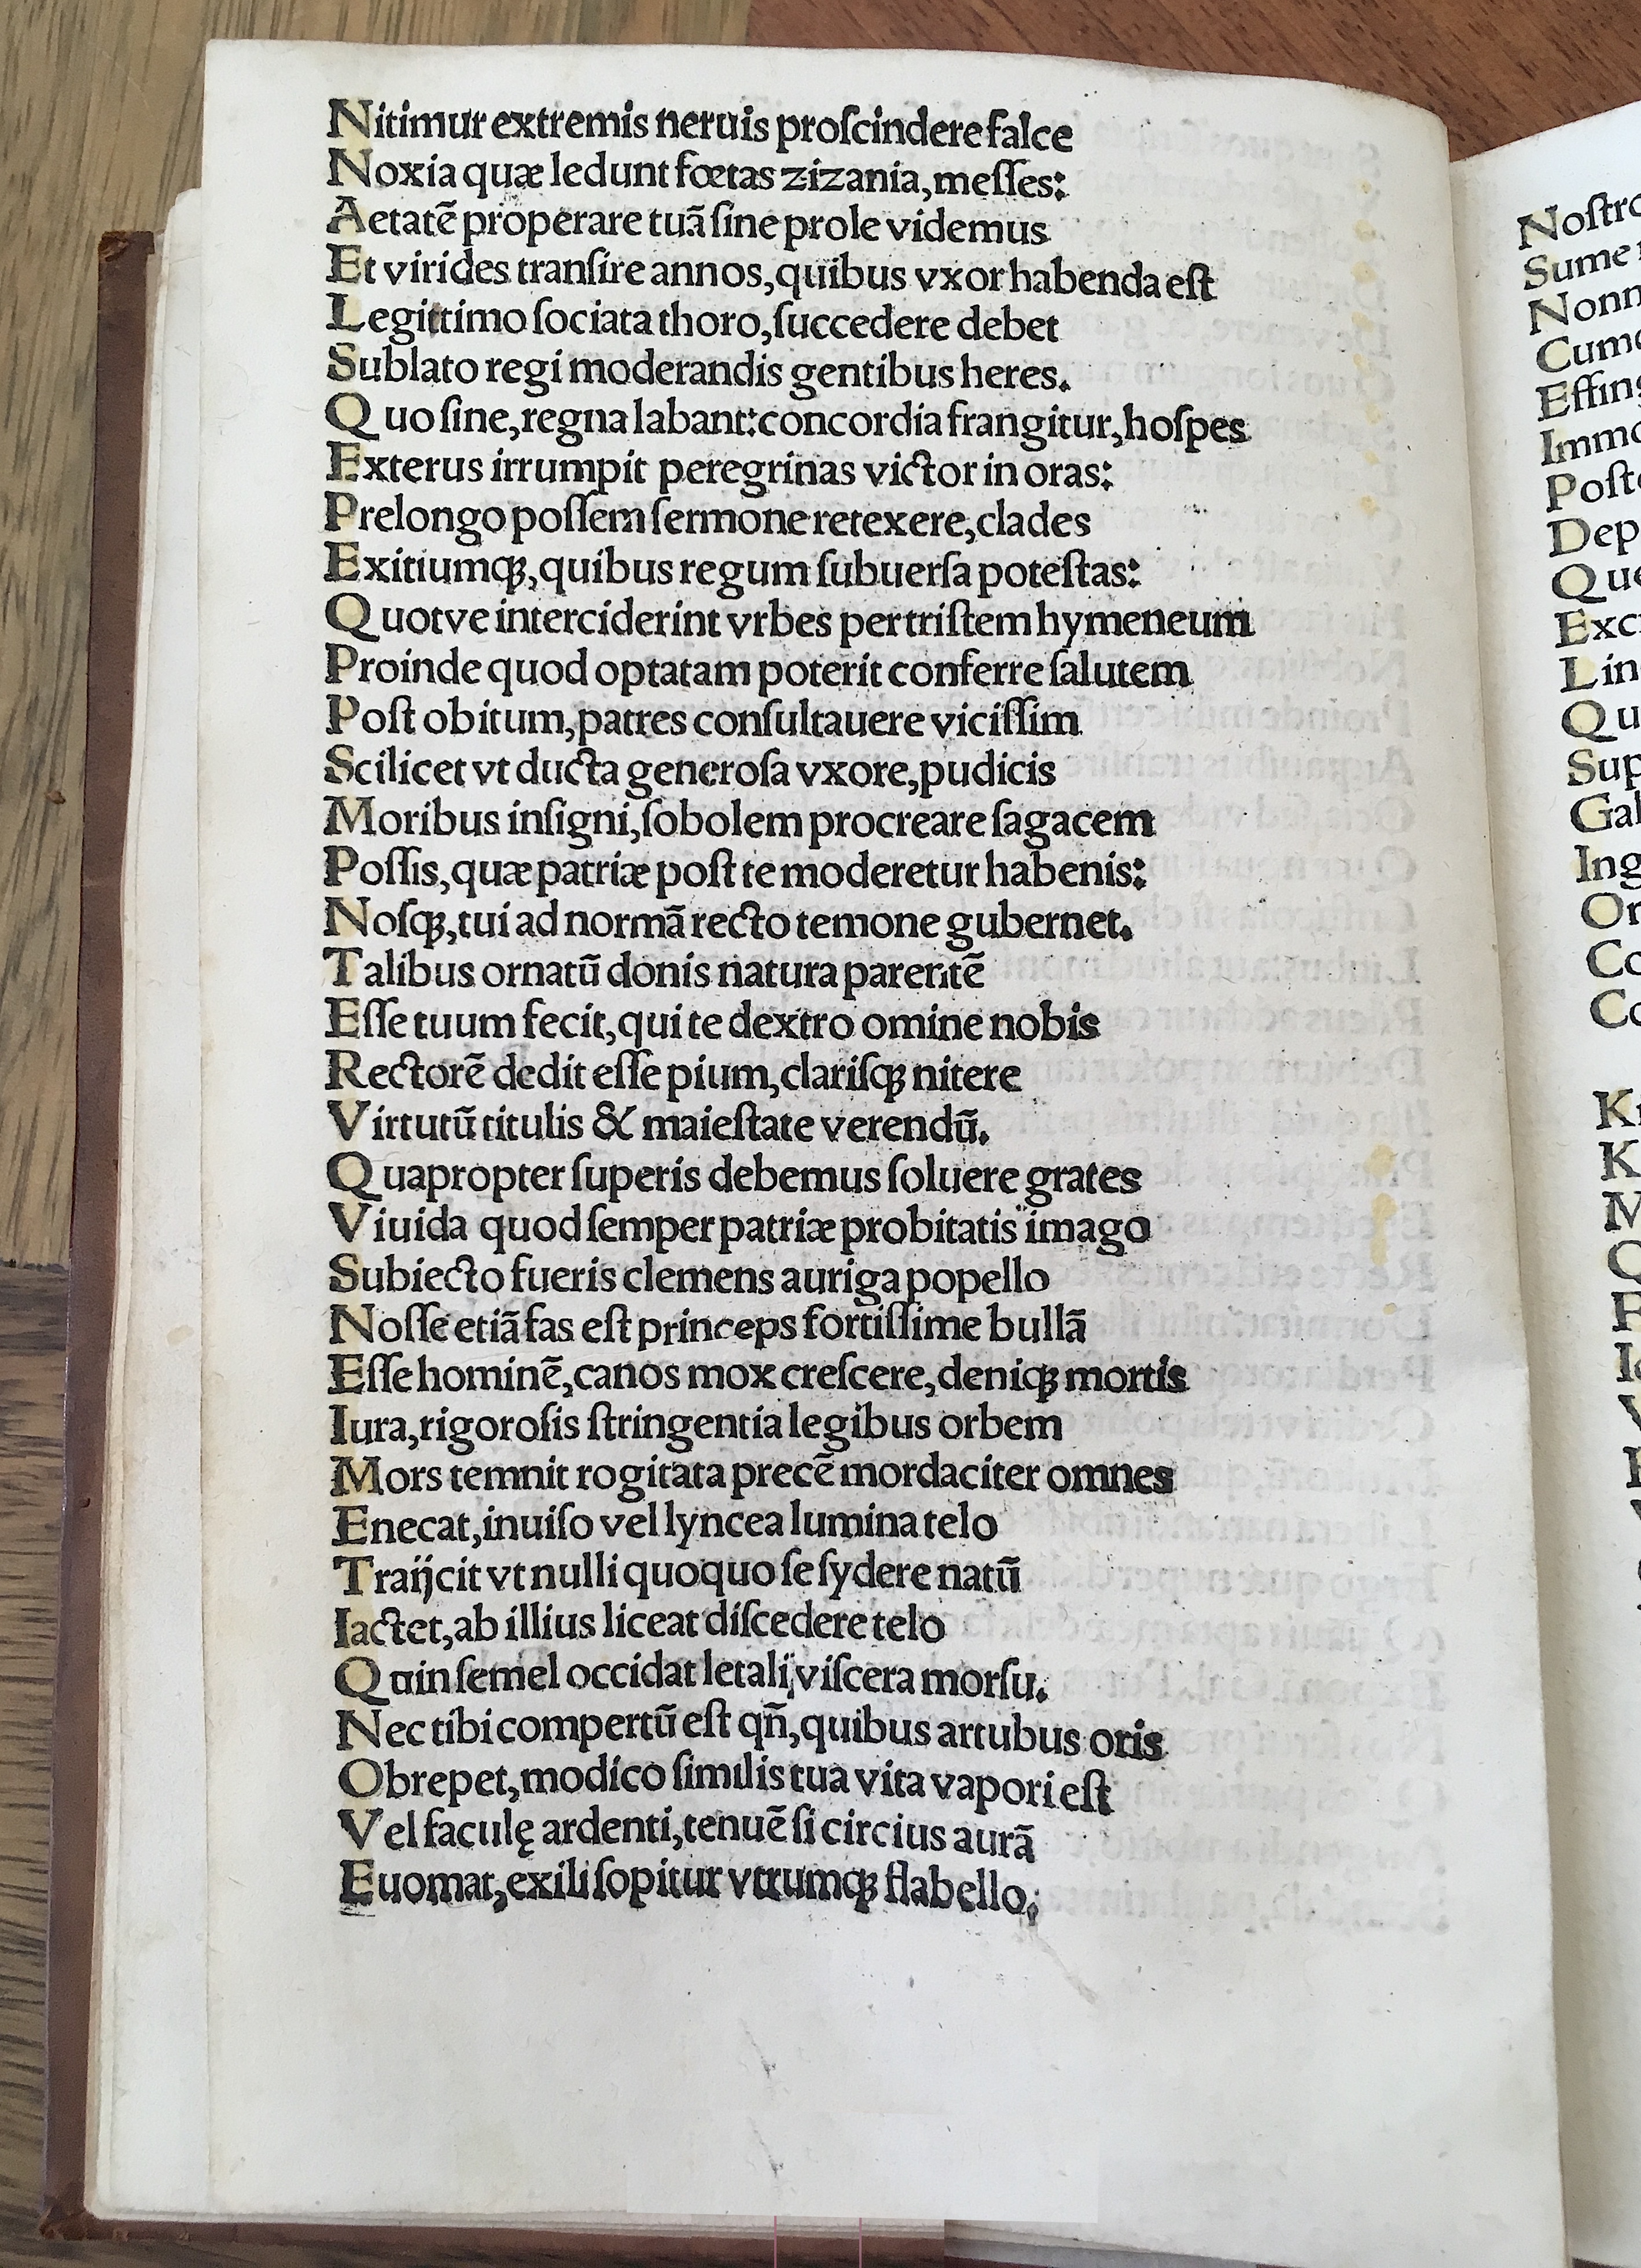 Nitimur extremis neruis proſcindere falce
Noxia quæ ledunt fœtas zizania,meſſes:
Aetatē properare tuā ſine prole videmus
Et virides tranſire annos,quibus vxor habenda eſt
Legittimo ſociata thoro,ſuccedere debet
Sublato regi moderandis gentibus heres.
Quo ſine,regna labant:concordia frangitur,hoſpes
Exterus irrumpit peregrinas victor in oras:
Prelongo poſſem ſermone retexere,clades
Exitiumqꝫ,quibus regum ſubuerſa poteſtas:
Quotve interciderint vrbes per triſtem hymeneum
Proinde quod optatam poterit conferre ſalutem
Poſt obitum,patres conſultauere viciſſim
Scilicet vt ducta generoſa vxore,pudicis
Moribus inſigni,ſobolem procreare ſagacem
Poſſis,quæ patriæ poſt te moderetur habenis:
Noſqꝫ,tui ad normā recto temone gubernet.
Talibus ornatū donis natura parentē
Eſſe tuum fecit,qui te dextro omine nobis
Rectorē dedit eſſe pium,clariſqꝫ nitere
Virtutū titulis & maieſtate verendū.
Quapropter ſuperis debemus ſoluere grates
Viuida quod ſemper patriæ probitatis imago
Subiecto fueris clemens auriga popello
Noſſe etiā fas eſt princeps fortiſſime bullā
Eſſe hominē,canos mox creſcere,deniqꝫ mortis
Iura,rigoroſis ſtringentia legibus orbem
Mors temnit rogitata precē mordaciter omnes
Enecat,inuiſo vel lyncea lumina telo
Traijcit vt nulli quoquo ſe ſydere natū
Iactet,ab illius liceat diſcedere telo
Quin ſemel occidat letali viſcera morſu.
Nec tibi compertū eſt qñ,quibus artubus oris
Obrepet,modico ſimilis tua vita vapori eſt
Vel faculę ardenti,tenuē ſi circius aurā
Euomat,exili ſopitur vtrumqꝫ flabello,
Sume
Q
Co
Co